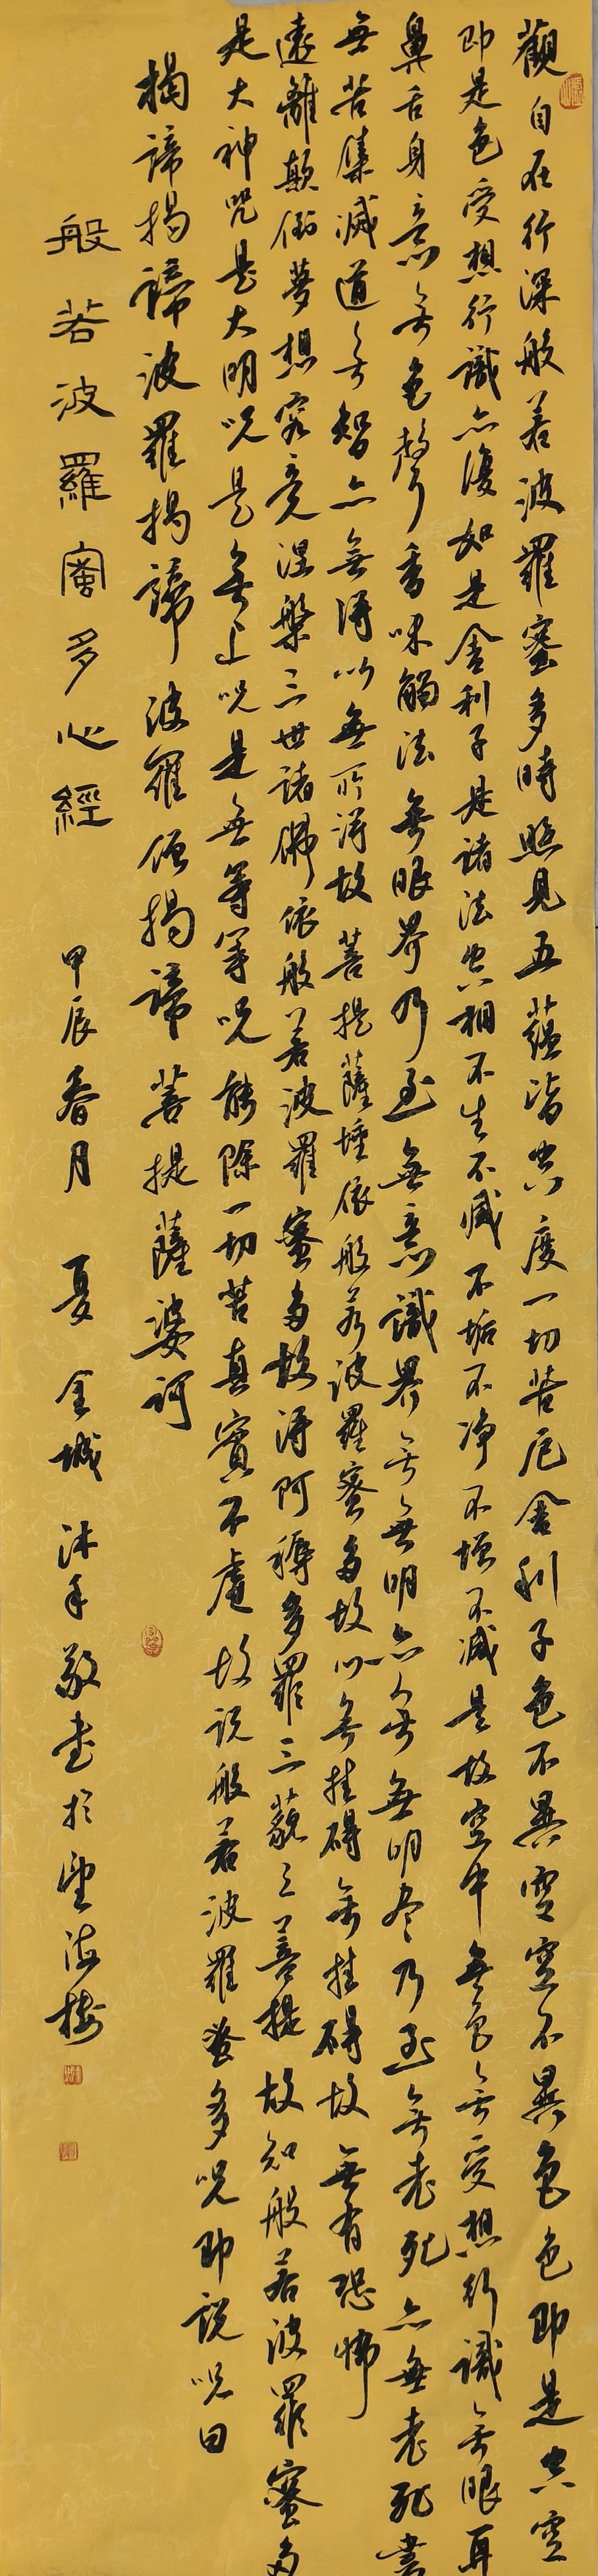 觀自在行深般若波羅蜜多時照見五蘊皆空度一切苦厄舍利子色不異空空不異色色即是空空
即是色受想行識亦復如是舍利子是諸法空相不生不滅不垢不净不增不減是故空中無色無受想行識無眼耳
鼻舌身意無色聲香味觸法無眼界乃至無意識界無無明亦無無明盡乃至無老死亦無老死盡
無苦集滅道無智亦無得以無所得故菩提薩埵依般若波羅蜜多故心無挂礙無挂礙故無有恐怖
遠離顛倒夢想究竟涅槃三世諸佛依般若波羅蜜多故得阿耨多羅三藐三菩提故知般若波羅蜜多
是大神咒是大明咒是無上咒是無等等咒能除一切苦真實不虛故説般若波羅蜜多咒即説咒曰
揭諦揭諦波羅揭諦波羅僧揭諦菩提薩婆訶
般若波羅蜜多心經 甲辰春月 夏金城沐手敬書於望海樓